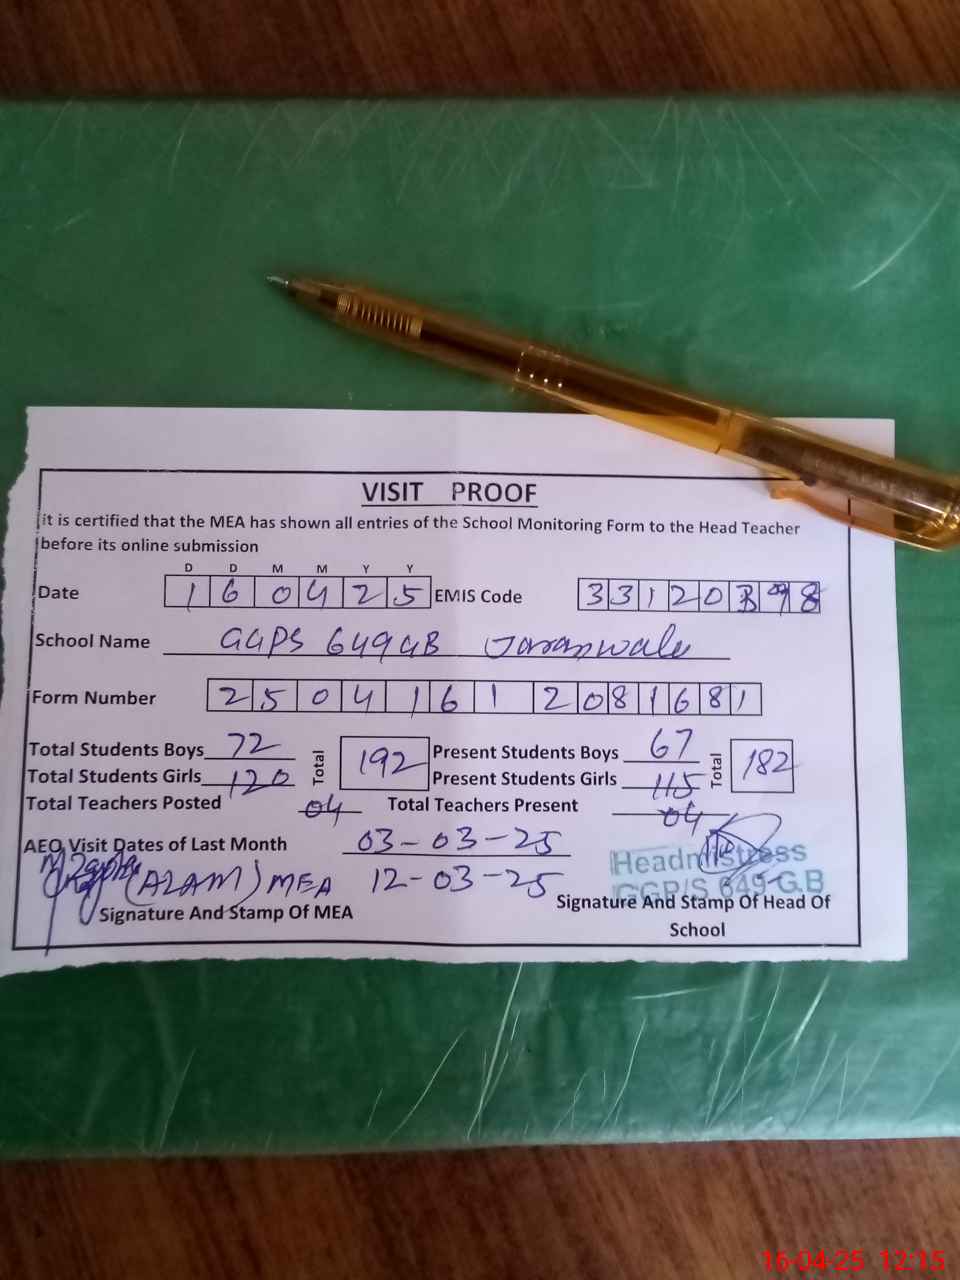 VISIT PROOF
it is certified that the MEA has shown all entries of the School Monitoring Form to the Head Teacher
before its online submission
D D M M Y Y
Date 1 6 0 4 2 5 EMIS Code 3 3 1 2 0 3 9 8
School Name GGPS 649 GB Jaranwala
Form Number 2 5 0 4 1 6 1 2 0 8 1 6 8 1
Total Students Boys 72 Total 192 Present Students Boys 67 Total 182
Total Students Girls 120 Present Students Girls 115
Total Teachers Posted 04 Total Teachers Present 04
AEO Visit Dates of Last Month 03-03-25
Headmistress
(AZAM) MEA 12-03-25 GGP/S 649-G.B
Signature And Stamp Of MEA Signature And Stamp Of Head Of
School
16-04-25 12:15